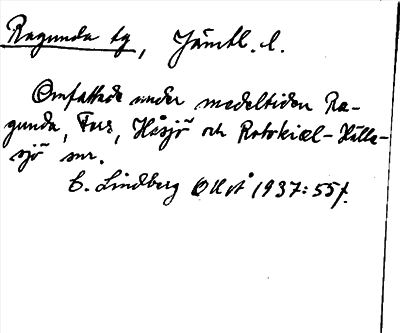 Ragunda tg, Jämtl. l.
Omfattade under medeltiden Ra-
gunda, Fors, Håsjö och Rotokiæl-Hälle-
sjö snr.
C. Lindberg OUÅ 1937: 55 f.